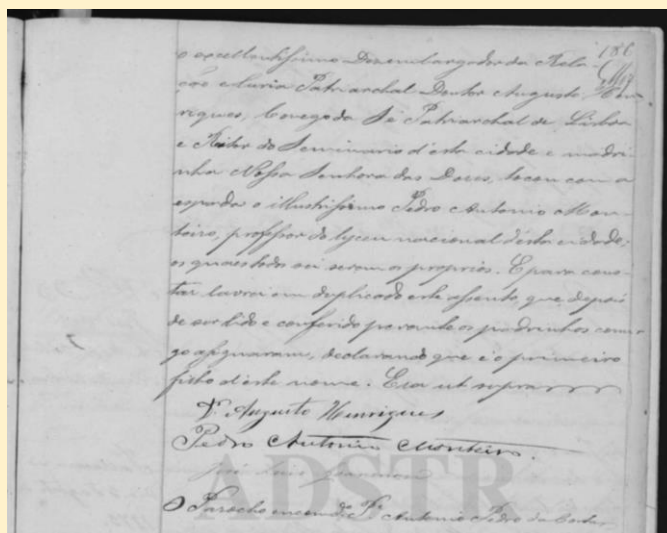 186
o excellentissimo Dezembargador da Rela-
ção e Curia Patriarchal Doutor Augusto Hen-
riques, Conego da Sé Patriarchal de Lisboa
e Reitor do Seminario d'esta cidade e madri-
nha Nossa Senhora das Dores, tocou com a
espada o illustrissimo Pedro Antonio Mon-
teiro, professor do lyceu nacional d'esta cidade;
os quaes todos sei serem os proprios. E para cons-
tar lavrei em duplicado este assento, que, depois
de ser lido e conferido perante os padrinhos comi-
go assignaram, declarando que é o primeiro
filho d'este nome. Era ut supra
Dr. Augusto Henriques
Pedro Antonio Monteiro.
José
ADSTR
O Parocho encomdo Pe Antonio Pedro da